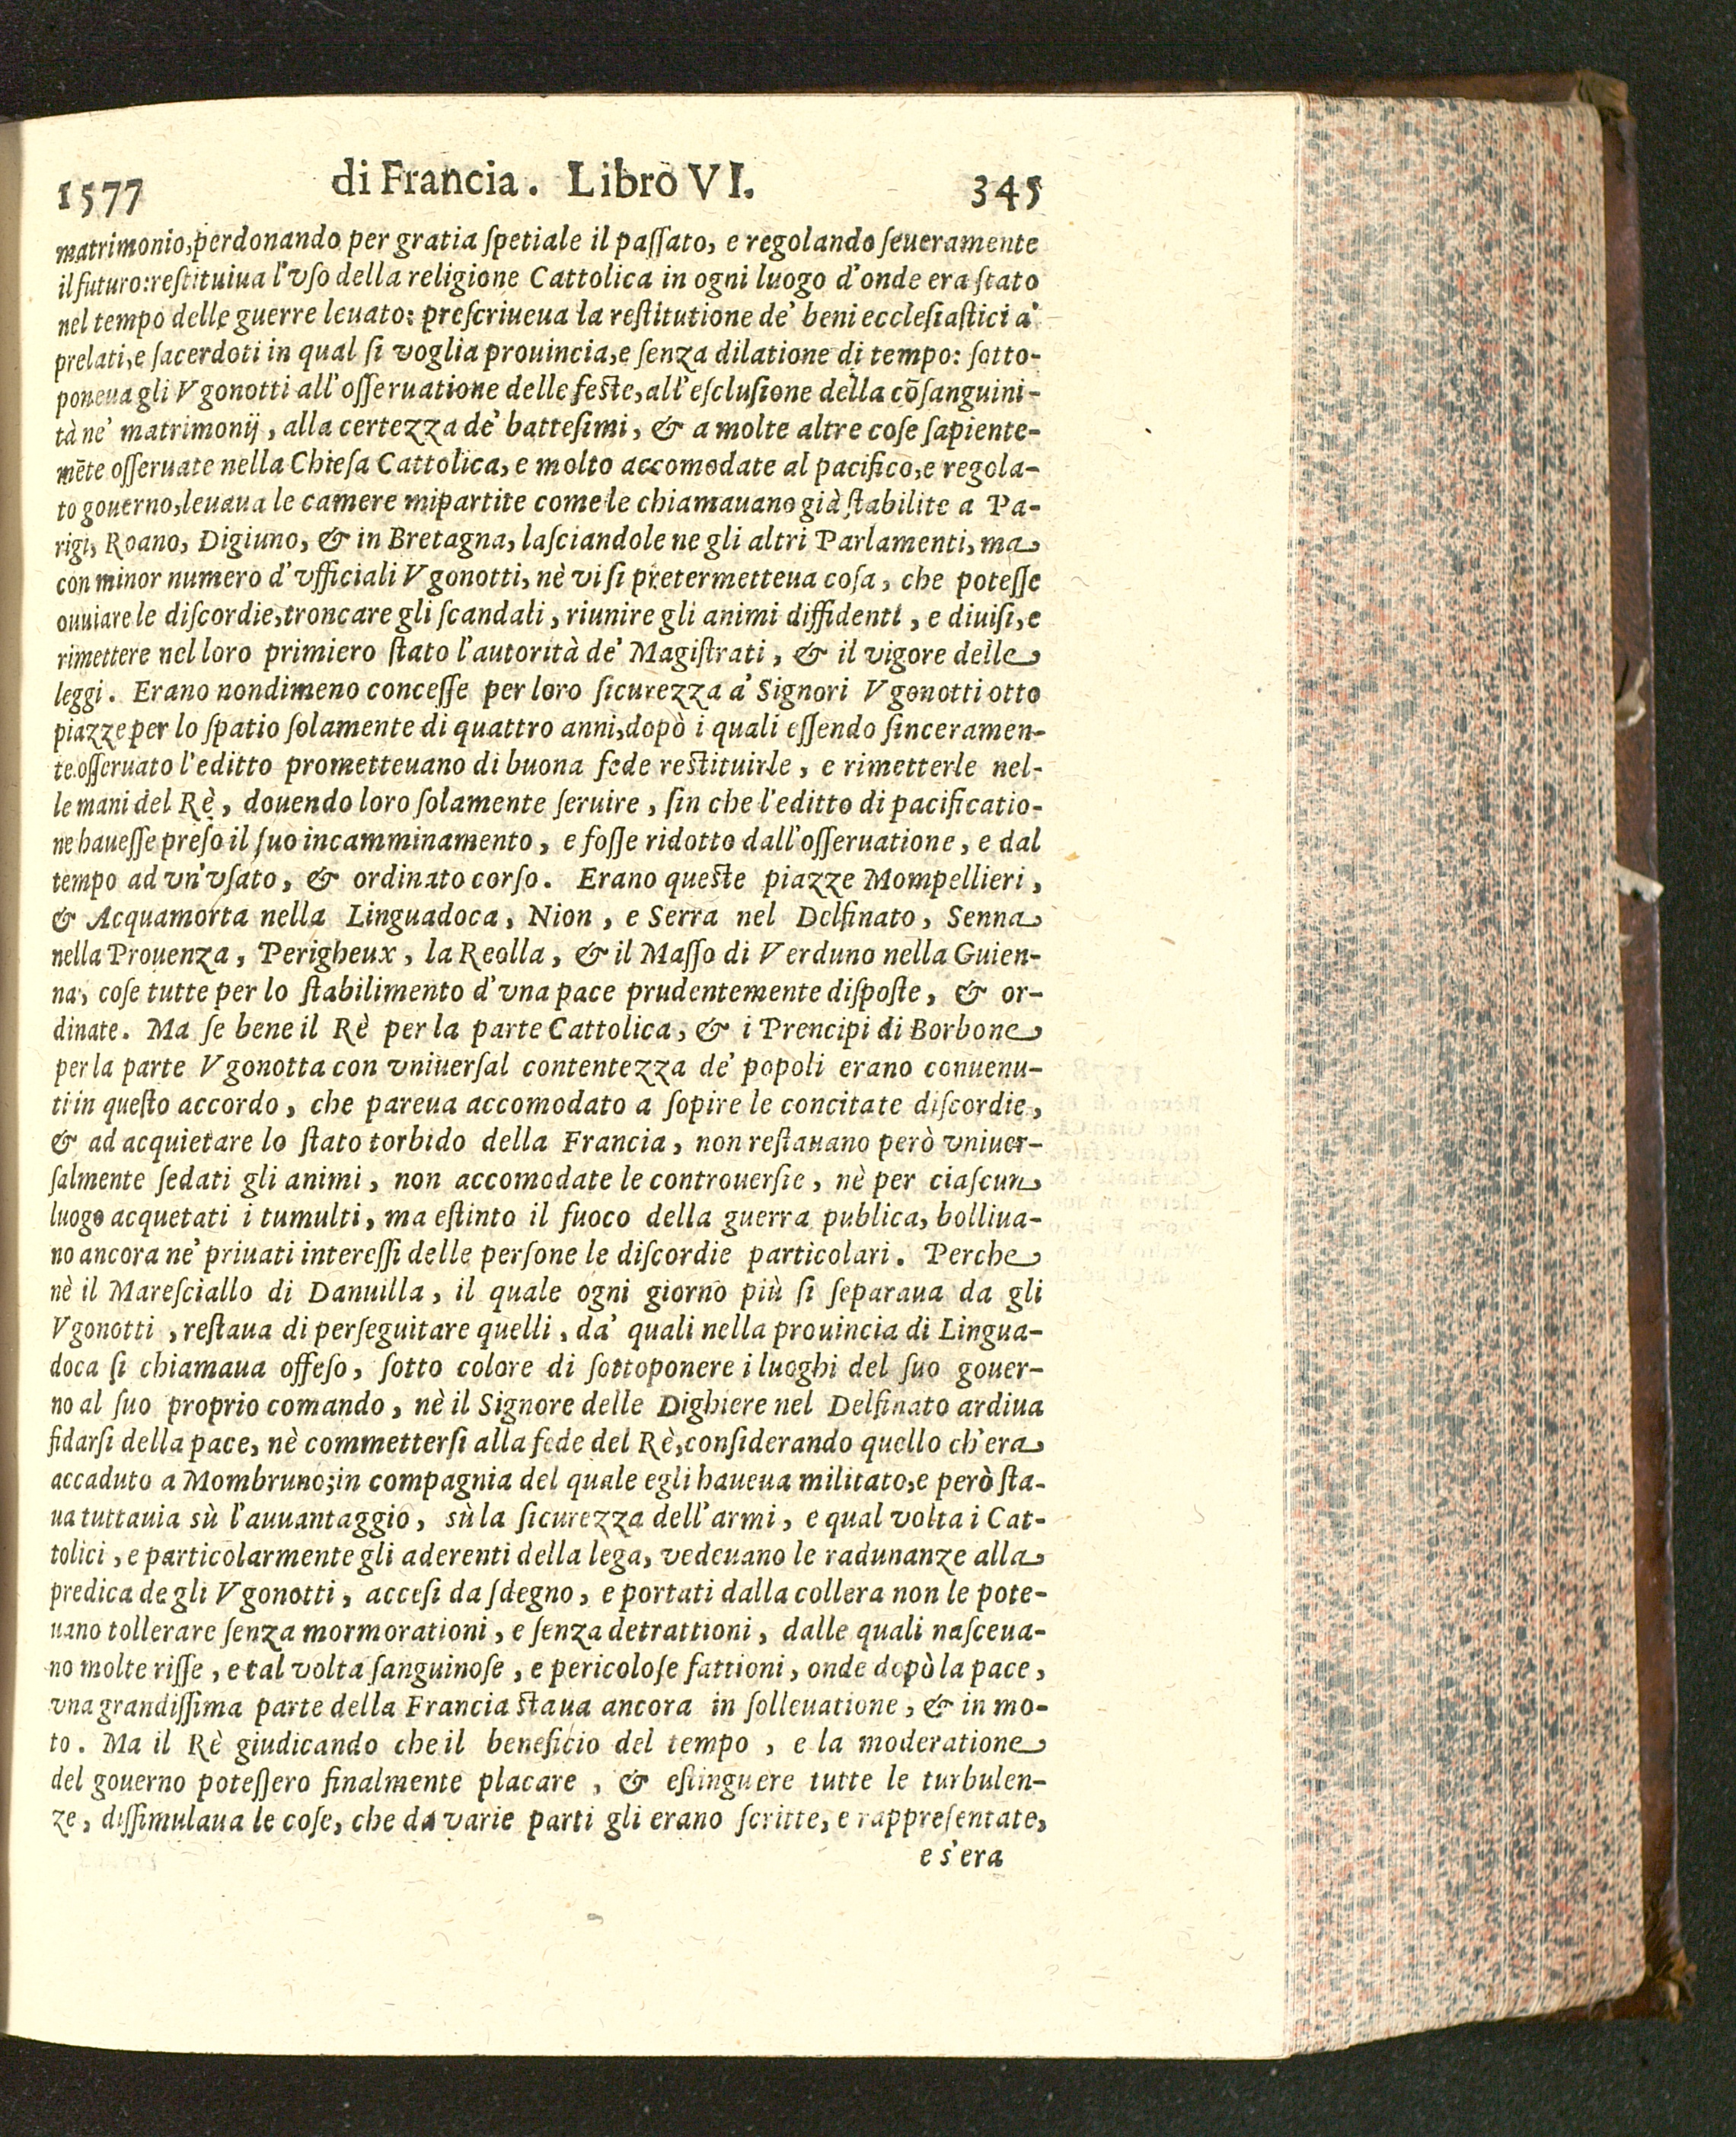 1577 di Francia. Libro VI. 345
matrimonio, perdonando per gratia ſpetiale il paſſato, e regolando ſeueramente
il futuro: reſtituiua l'vſo della religione Cattolica in ogni luogo d'onde era ſtato
nel tempo delle guerre leuato: preſcriueua la reſtitutione de' beni eccleſiaſtici a'
prelati, e ſacerdoti in qual ſi voglia prouincia, e ſenza dilatione di tempo: ſotto-
poneua gli Vgonotti all'oſſeruatione delle feſte, all'eſcluſione della cōſanguini-
tà ne' matrimonij, alla certezza de' batteſimi, & a molte altre coſe ſapiente-
mēte oſſeruate nella Chieſa Cattolica, e molto accomodate al pacifico, e regola-
to gouerno, leuaua le camere mipartite come le chiamauano già ſtabilite a Pa-
rigi, Roano, Digiuno, & in Bretagna, laſciandole ne gli altri Parlamenti, ma
con minor numero d'vfficiali Vgonotti, nè vi ſi pretermetteua coſa, che poteſſe
ouuiare le diſcordie, troncare gli ſcandali, riunire gli animi diffidenti, e diuiſi, e
rimettere nel loro primiero ſtato l'autorità de' Magiſtrati, & il vigore delle
leggi. Erano nondimeno conceſſe per loro ſicurezza a' Signori Vgonotti otto
piazze per lo ſpatio ſolamente di quattro anni, dopò i quali eſſendo ſinceramen-
te oſſeruato l'editto prometteuano di buona fede reſtituirle, e rimetterle nel-
le mani del Rè, douendo loro ſolamente ſeruire, ſin che l'editto di pacificatio-
ne haueſſe preſo il ſuo incamminamento, e foſſe ridotto dall'oſſeruatione, e dal
tempo ad vn'vſato, & ordinato corſo. Erano queſte piazze Mompellieri,
& Acquamorta nella Linguadoca, Nion, e Serra nel Delfinato, Senna
nella Prouenza, Perigheux, la Reolla, & il Maſſo di Verduno nella Guien-
na, coſe tutte per lo ſtabilimento d'vna pace prudentemente diſpoſte, & or-
dinate. Ma ſe bene il Rè per la parte Cattolica, & i Prencipi di Borbone
per la parte Vgonotta con vniuerſal contentezza de' popoli erano conuenu-
ti in queſto accordo, che pareua accomodato a ſopire le concitate diſcordie,
& ad acquietare lo ſtato torbido della Francia, non reſtauano però vniuer-
ſalmente ſedati gli animi, non accomodate le controuerſie, nè per ciaſcun
luogo acquetati i tumulti, ma eſtinto il fuoco della guerra publica, bolliua-
no ancora ne' priuati intereſſi delle perſone le diſcordie particolari. Perche
nè il Mareſciallo di Danuilla, il quale ogni giorno più ſi ſeparaua da gli
Vgonotti, reſtaua di perſeguitare quelli, da' quali nella prouincia di Lingua-
doca ſi chiamaua offeſo, ſotto colore di ſottoponere i luoghi del ſuo gouer-
no al ſuo proprio comando, nè il Signore delle Dighiere nel Delfinato ardiua
fidarſi della pace, nè commetterſi alla fede del Rè, conſiderando quello ch'era
accaduto a Mombruno; in compagnia del quale egli haueua militato, e però ſta-
ua tuttauia sù l'auuantaggio, sù la ſicurezza dell'armi, e qual volta i Cat-
tolici, e particolarmente gli aderenti della lega, vedeuano le radunanze alla
predica de gli Vgonotti, acceſi da ſdegno, e portati dalla collera non le pote-
uano tollerare ſenza mormorationi, e ſenza detrattioni, dalle quali naſceua-
no molte riſſe, e tal volta ſanguinoſe, e pericoloſe fattioni, onde dopò la pace,
vna grandiſſima parte della Francia ſtaua ancora in ſolleuatione, & in mo-
to. Ma il Rè giudicando che il beneficio del tempo, e la moderatione
del gouerno poteſſero finalmente placare, & eſtinguere tutte le turbulen-
ze, diſſimulaua le coſe, che da varie parti gli erano ſcritte, e rappreſentate,
e s'era